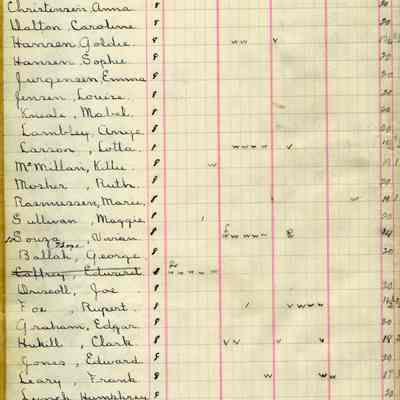 Christensen, Anna 8 20
Dalton, Caroline 8 20
Hansen, Goldie 8
Hansen, Sophie 8 20
Jurgensen, Emma 8 20
Jensen, Louise 8 20
Kneale, Mabel 8 20
Lambley, Annye 8 20
Larson, Lotta 8
McMillan, Kittie 8
Mosher, Ruth 8 20
Rasmussen, Marie 8
Sullivan, Maggie 8 20
Souza, Vivian 8
Ballah, George 8 20
Caffrey, Edward 8
Driscoll, Joe 8 20
Foe, Rupert 8
Graham, Edgar 8 20
Hukill, Clark 8 18
Jones, Edward 8 20
Leary, Frank 8 17
Lynch, Humphrey 8